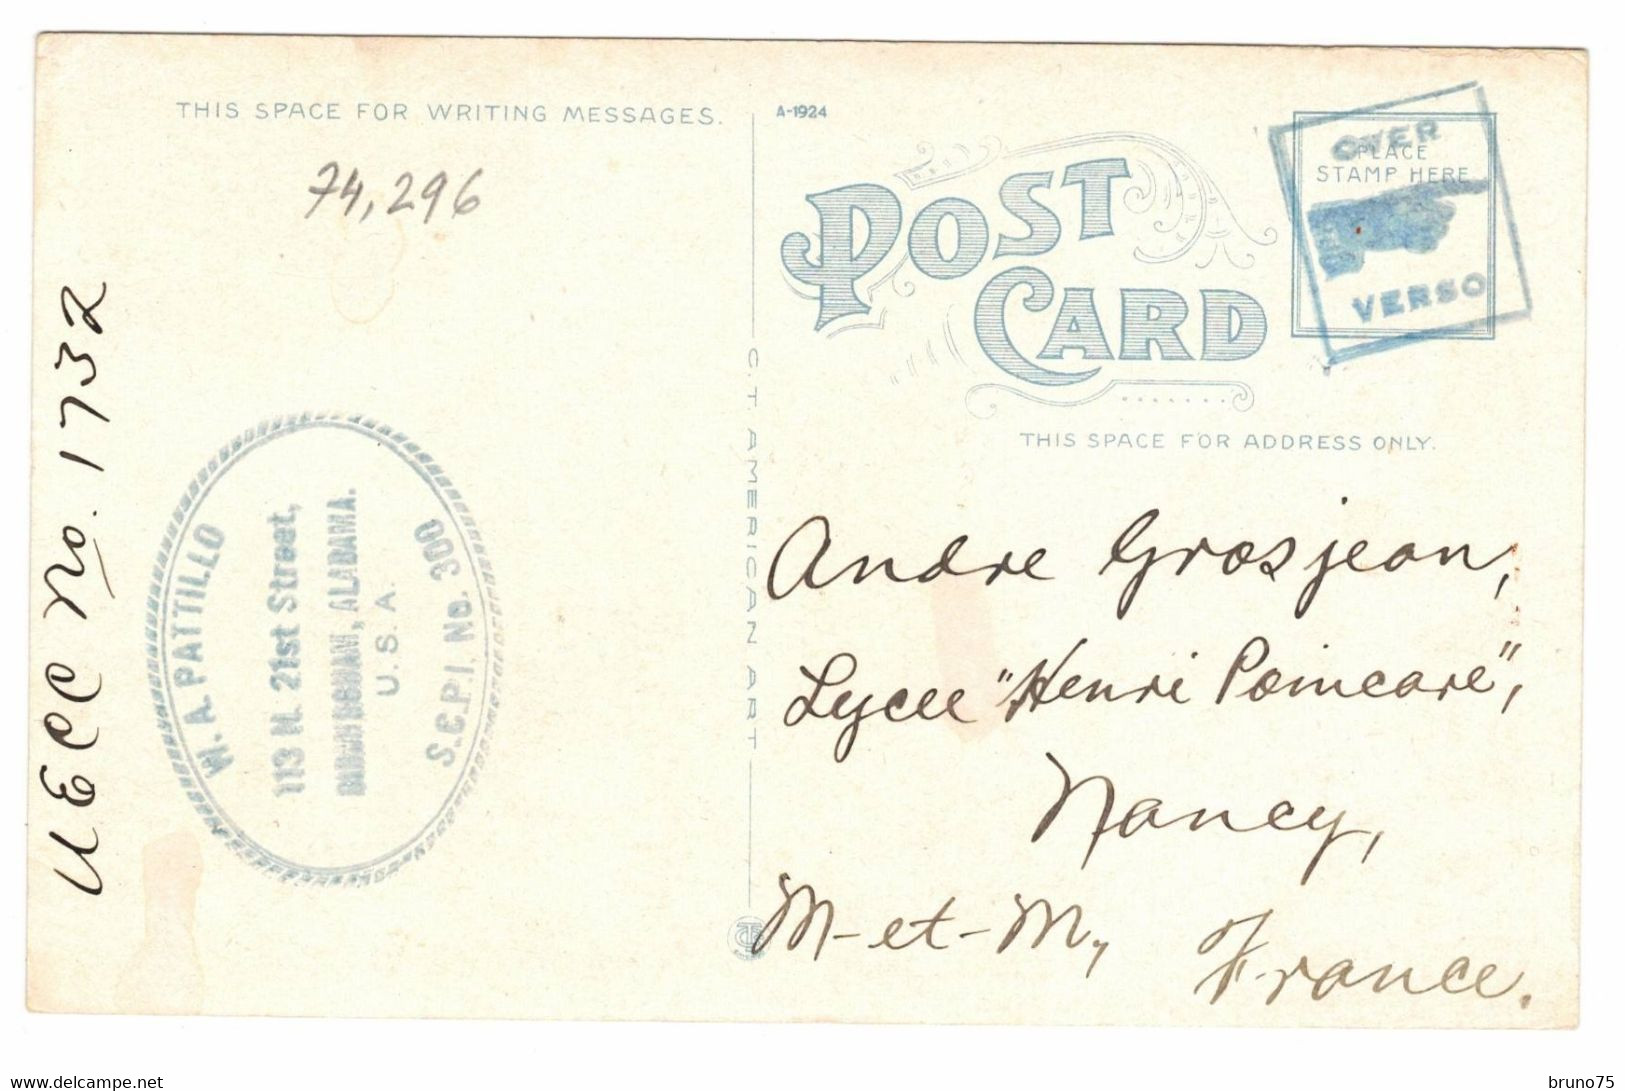 THIS SPACE FOR WRITING MESSAGES.
74,296
UECC No. 1732
W. A. PATTILLO
113 N. 21st Street,
BIRMINGHAM, ALABAMA.
U. S. A.
S.C.P.I. No. 300
C.T. AMERICAN ART
A-1924
POST
CARD
OVER
PLACE
STAMP HERE
VERSO
THIS SPACE FOR ADDRESS ONLY.
Andre Grosjean,
Lycee "Henri Poincare",
Nancy,
M-et-M, France.
delcampe.net
bruno75